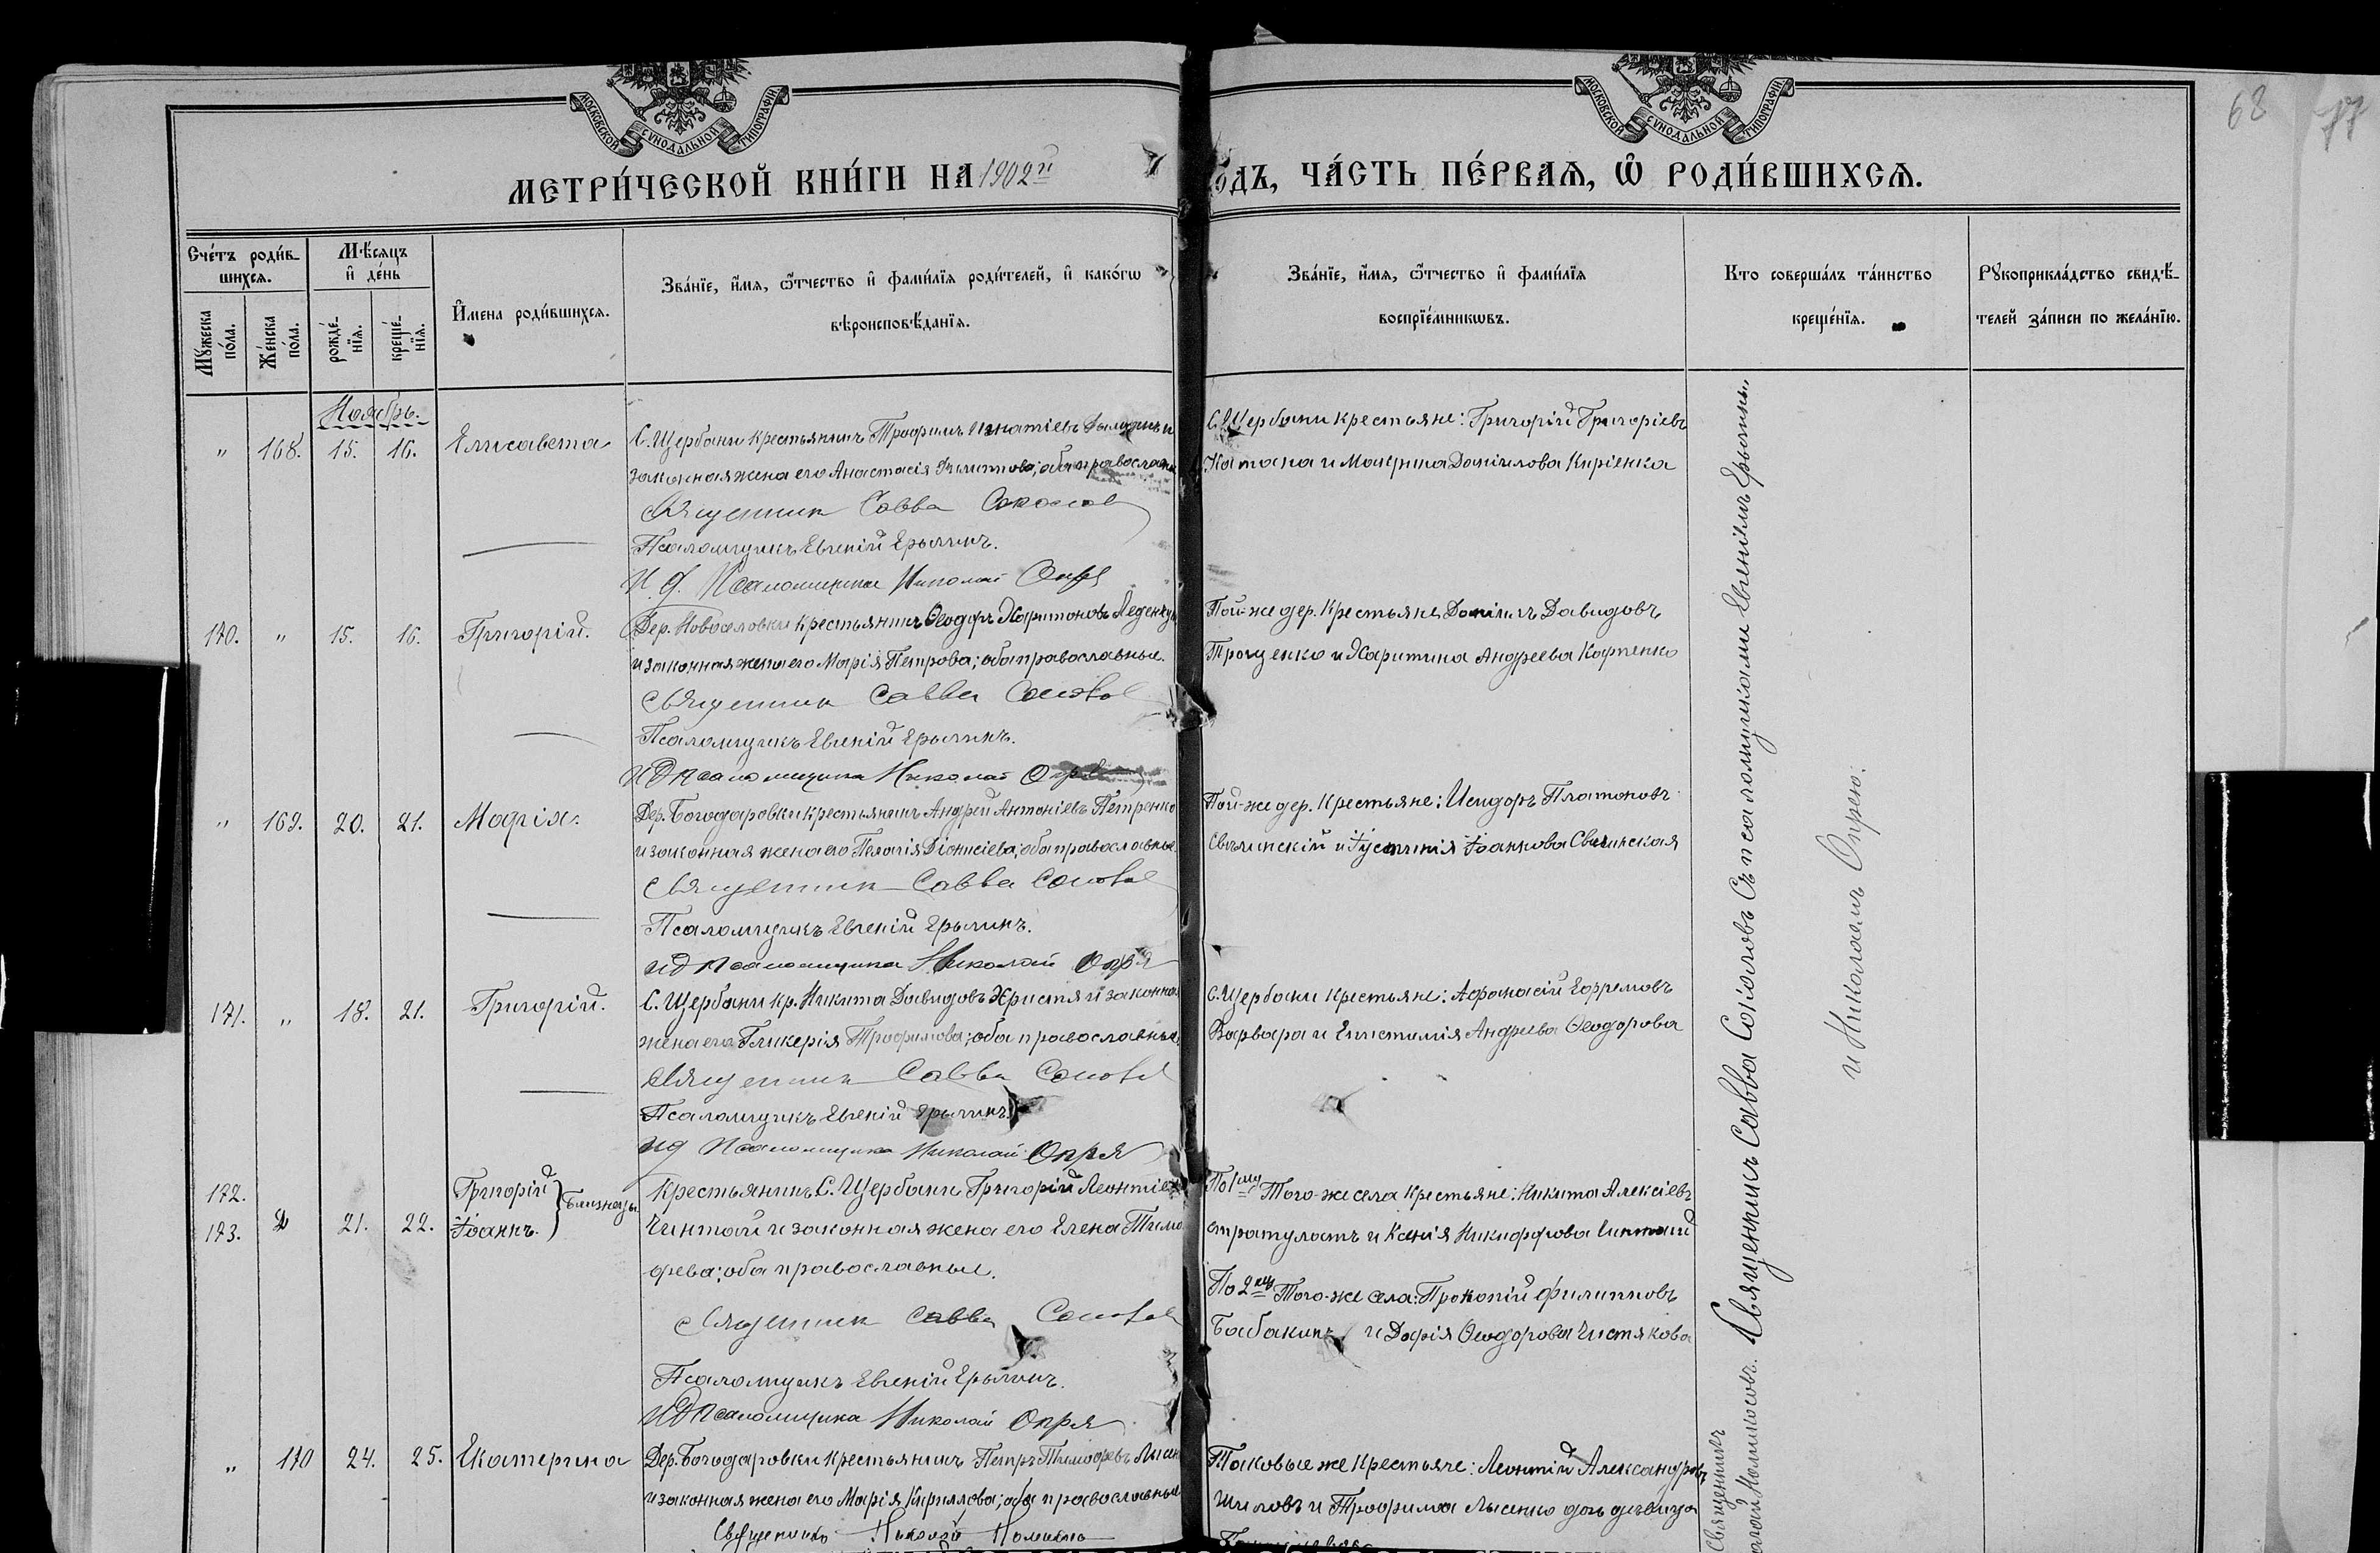 МОСКОВСКОЙ СѴНОДАЛЬНОЙ ТИПОГРАФІИ
МОСКОВСКОЙ СѴНОДАЛЬНОЙ ТИПОГРАФІИ
68 77
МЕТРИ́ЧЕСКОЙ КНИ́ГИ НА 1902й
ДЪ, ЧА́СТЬ ПЕ́РВАѦ, Ѡ҆ РОДИ́ВШИХСѦ.
Сче́тъ роди́в-
шихся.
Мꙋ́жеска по́ла.
Же́нска по́ла.
Мѣ́сяцъ
и҆ де́нь
рожде́-
нїя.
креще́-
нїя.
И҆́мена роди́вшихся.
Зва́нїе, и҆́мя, ѻ҆́тчество и҆ фами́лїя роди́телей, и҆ како́гѡ
вѣроисповѣ́данїя.
Зва́нїе, и҆́мя, ѻ҆́тчество и҆ фами́лїя
воспрїе́мникѡвъ.
Кто соверша́лъ та́инство
креще́нїя.
Рꙋкоприкла́дство свидѣ́-
телей за́писи по жела́нїю.
Ноябрь.
" 168. 15. 16. Елисавета
С. Щербани крестьянинъ Трофимъ Игнатіевъ
законная жена его Анастасія Филиппова; оба православн
Священник Савва Соколов
Псаломщикъ Евгеній Ерынинъ.
И. д. Псаломщика Николай Опря
С. Щербани крестьяне: Григорій Григоріевъ
Катана и Макрина Даніилова Киріенка
170. " 15. 16. Григорій.
Дер. Новоселовки крестьянинъ Ѳеодоръ Харитоновъ
и законная жена его Марія Петрова; оба православные.
Священник Савва Соколов
Псаломщикъ Евгеній Ерынинъ.
И Д Псаломщика Николай Опря
Той-же дер. Крестьяне Даніилъ Давидовъ
Троценко и Харитина Андреева Карпенко
" 169. 20. 21. Марія.
Дер. Богодаровки крестьянинъ Андрей Антоніевъ Петренко
и законная жена его Пелагія Діонисіева; оба православные
Священник Савва Соколов
Псаломщикъ Евгеній Ерынинъ.
ид псаломщика Николай Опря
Той-же дер. Крестьяне: Исидоръ Платоновъ
и Іустинія Іоаннова
171. " 18. 21. Григорій.
С. Щербани кр. Никита Давидовъ Христя и законна
жена его Гликерія Трофимова; оба православные
Священник Савва Соколов
Псаломщикъ Евгеній Ерынинъ.
ид Псаломщика Николай Опря
С. Щербани крестьяне: Афанасій Ефремовъ
Варвара и Епистимія Андреева Ѳеодорова
172.
173. " 21. 22. Григорій
Іоаннъ. } Близнецы.
Крестьянинъ С. Щербани Григорій Леонтіев
Чинтой и законная жена его Елена Тимо
фева; оба православные.
Священник Савва Соколов
Псаломщикъ Евгеній Ерынинъ.
ИД Псаломщика Николай Опря
По 1му Того-же села крестьяне: Никита Алексіевъ
Стратулатъ и Ксенія Никифорова Чинтой
По 2му Того-же села: Прокопій Филипповъ
Бабакинъ и Дарія Ѳеодорова Чистякова
" 170 24. 25. Екатерина
Дер. Богодаровки крестьянинъ Петръ Тимофевъ Лысен
и законная жена его Марія Кириллова; оба православные
Священникъ Николай
Таковые же крестьяне: Леонтій Александровъ
Шиловъ и Трофима Лысенко дочь дѣвица
Священникъ Савва Соколовъ Съ псаломщиками Евгеніемъ Ерынинымъ
и Николаемъ Опрею.
Священникъ